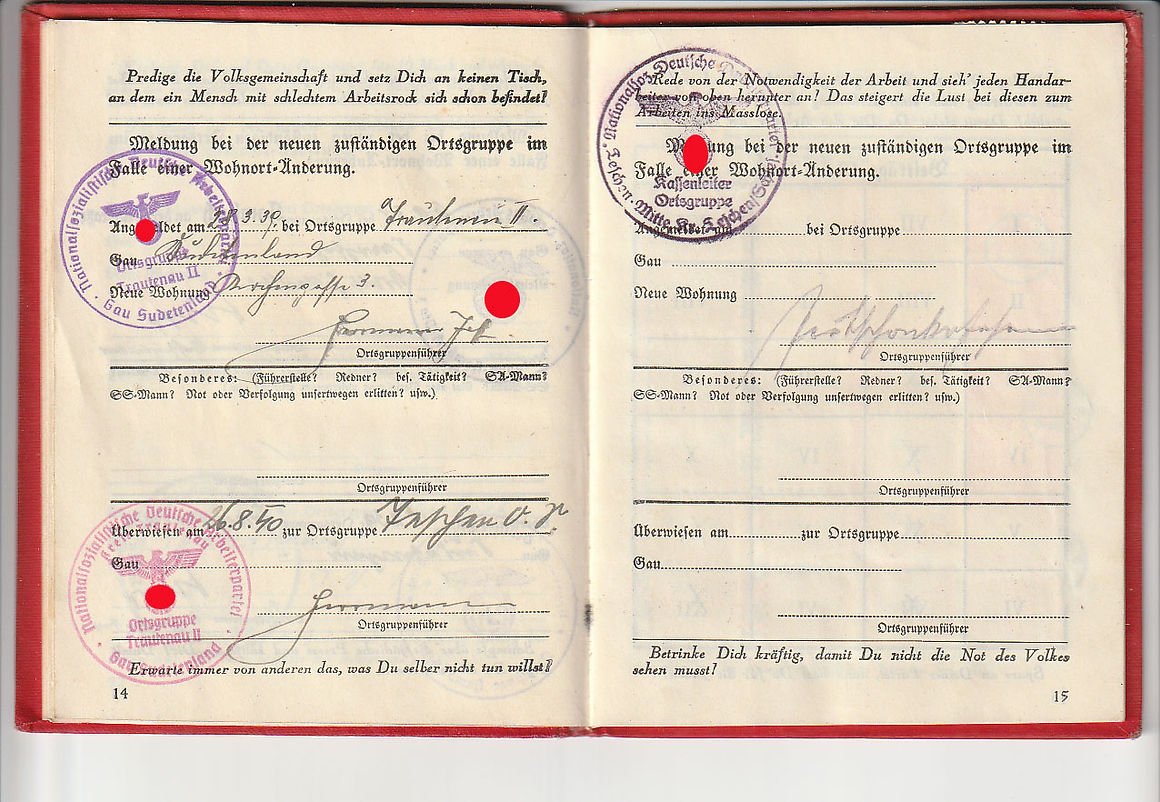 Predige die Volksgemeinschaft und setz Dich an keinen Tisch,
an dem ein Mensch mit schlechtem Arbeitsrock sich schon befindet!
Meldung bei der neuen zuständigen Ortsgruppe im
Falle einer Wohnort-Änderung.
Nationalsozialistische Deutsche Arbeiterpartei
Ortsgruppe
Trautenau II
Gau Sudetenland
Angemeldet am 28.3.39. bei Ortsgruppe Trautenau II.
Gau Sudetenland
Neue Wohnung Kirchengasse 3.
Ortsgruppenführer
Besonderes: (Führerstelle? Redner? bes. Tätigkeit? SA-Mann?
SS-Mann? Not oder Verfolgung unsertwegen erlitten? usw.)
Ortsgruppenführer
Überwiesen am 26.8.40 zur Ortsgruppe Teschen
Gau
Nationalsozialistische Deutsche Arbeiterpartei
Kreis Trautenau
Ortsgruppe
Trautenau II
Gau Sudetenland
Herrmann
Ortsgruppenführer
Erwarte immer von anderen das, was Du selber nicht tun willst!
14
Rede von der Notwendigkeit der Arbeit und sieh' jeden Handar-
beiter von oben herunter an! Das steigert die Lust bei diesen zum
Arbeiten ins Masslose.
Nationalsoz. Deutsche
Kassenleiter
Ortsgruppe
Teschen-Mitte Kr. Teschen
Meldung bei der neuen zuständigen Ortsgruppe im
Falle einer Wohnort-Änderung.
Angemeldet am bei Ortsgruppe
Gau
Neue Wohnung
Ortsgruppenführer
Besonderes: (Führerstelle? Redner? bes. Tätigkeit? SA-Mann?
SS-Mann? Not oder Verfolgung unsertwegen erlitten? usw.)
Ortsgruppenführer
Überwiesen am zur Ortsgruppe
Gau
Ortsgruppenführer
Betrinke Dich kräftig, damit Du nicht die Not des Volkes
sehen musst!
15